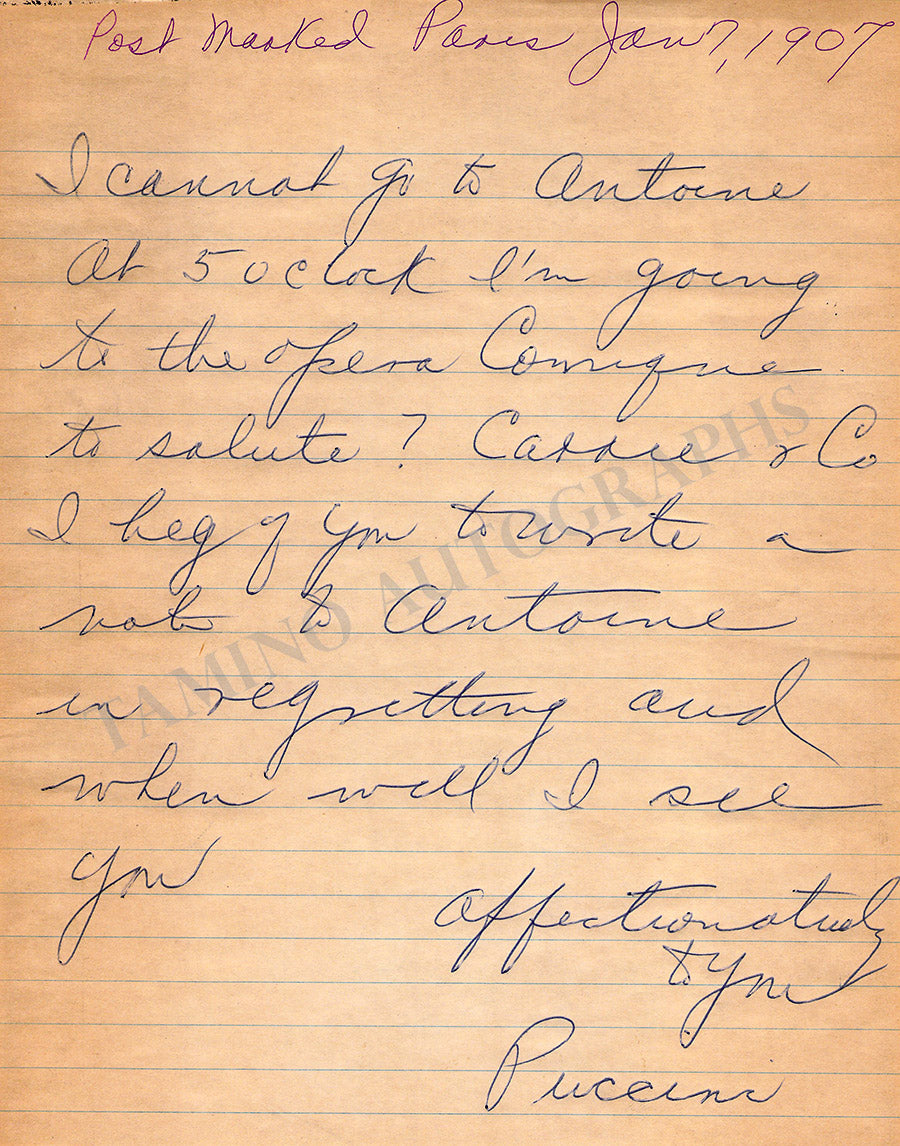 Post Marked Paris Jan 7, 1907
I cannot go to Antoine
At 5 oclock I'm going
to the opera Comique
to salute ? Carrie & Co
I beg of you to write a
note to Antoine
in regretting and
when will I see
you
affectionately
to you
Puccini
TAMINO AUTOGRAPHS